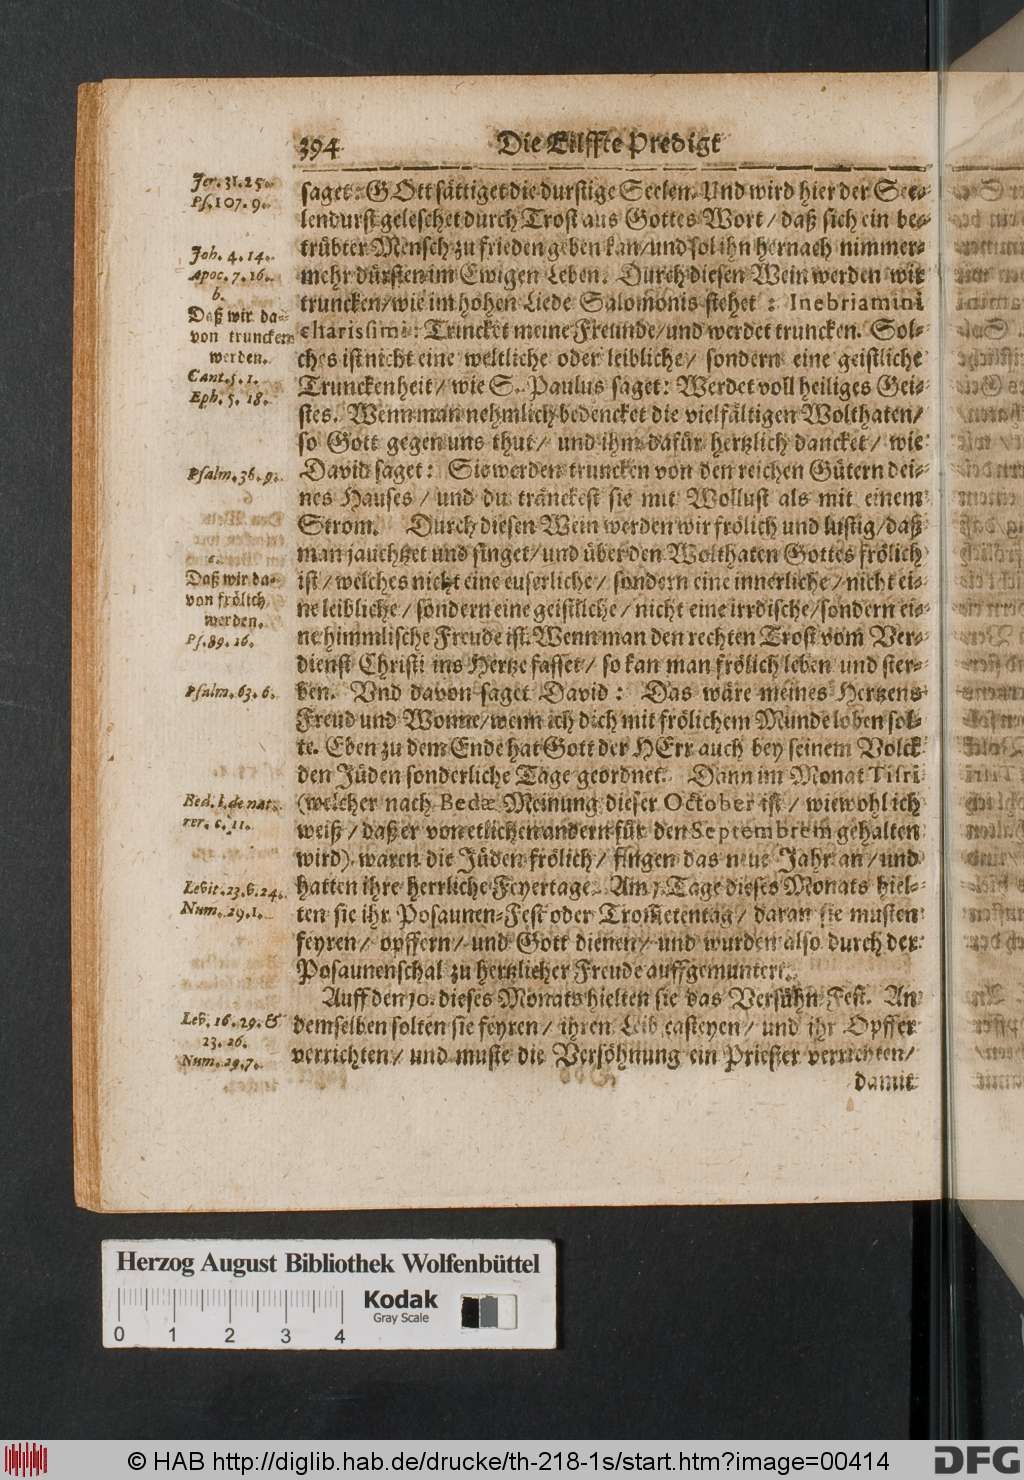 394 Die Eilffte Predigt
Jer. 31. 25.
Ps. 107. 9.
Joh. 4. 14.
Apoc. 7. 16.
b.
Daß wir da-
von truncken
werden.
Cant. 5. 1.
Eph. 5. 18.
Psalm. 36. 9.
c.
Daß wir da-
von frölich
werden.
Ps. 89. 16.
Psalm. 63. 6.
Bed. l. de nat.
rer. c. 11.
Levit. 23. v. 24.
Num. 29. 1.
Lev. 16. 29. &
23. 26.
Num. 29. 7.
saget: GOtt sättiget die durstige Seelen. Und wird hier der See-
lendurst geleschet durch Trost aus Gottes Wort / daß sich ein be-
trübter Mensch zu frieden geben kan / und sol ihn hernach nimmer-
mehr dürsten im Ewigen Leben. Durch diesen Wein werden wir
truncken / wie im hohen Liede Salomonis stehet : Inebriamini
charissimi: Trincket meine Freunde / und werdet truncken. Sol-
ches ist nicht eine weltliche oder leibliche / sondern eine geistliche
Trunckenheit / wie S. Paulus saget: Werdet voll heiliges Gei-
stes. Wenn man nehmlich bedencket die vielfältigen Wolthaten /
so Gott gegen uns thut / und ihm dafür hertzlich dancket / wie
David saget: Sie werden truncken von den reichen Gütern dei-
nes Hauses / und du tränckest sie mit Wollust als mit einem
Strom. Durch diesen Wein werden wir frölich und lustig / daß
man jauchtzet und singet / und über den Wolthaten Gottes frölich
ist / welches nicht eine euserliche / sondern eine innerliche / nicht ei-
ne leibliche / sondern eine geistliche / nicht eine irrdische / sondern ei-
ne himmlische Freude ist. Wenn man den rechten Trost vom Ver-
dienst Christi ins Hertze fasset / so kan man frölich leben und ster-
ben. Vnd davon saget David: Das wäre meines Hertzens
Freud und Wonne / wenn ich dich mit frölichem Munde loben sol-
te. Eben zu dem Ende hat Gott der HErr auch bey seinem Volck
den Jüden sonderliche Tage geordnet. Dann im Monat Tisri
(welcher nach Bedæ Meinung dieser October ist / wiewohl ich
weiß / daß er von etlichen andern für den Septembrem gehalten
wird) waren die Jüden frölich / fingen das neue Jahr an / und
hatten ihre herrliche Feyertage. Am 1. Tage dieses Monats hiel-
ten sie ihr Posaunen-Fest oder Trometentag / daran sie musten
feyren / opffern / und Gott dienen / und wurden also durch der
Posaunenschal zu hertzlicher Freude auffgemuntert.
Auff den 10. dieses Monats hielten sie das Versühn-Fest. An
demselben solten sie feyren / ihren Leib casteyen / und ihr Opffer
verrichten / und muste die Versöhnung ein Priester verrichten /
damit
Herzog August Bibliothek Wolfenbüttel
Kodak
Gray Scale
0 1 2 3 4
© HAB http://diglib.hab.de/drucke/th-218-1s/start.htm?image=00414
DFG